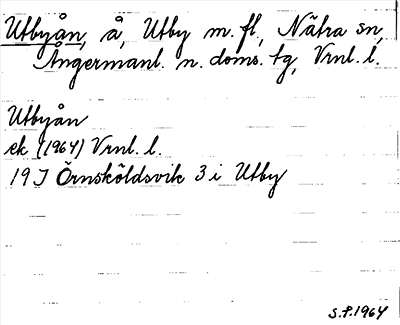 Utbyån, å, Utby m. fl., Nätra sn,
Ångermanl. n. doms. tg, Vrnl. l.
Utbyån
ek (1964) Vrnl. l.
19J Örnsköldsvik 3 i Utby
S.P.1964